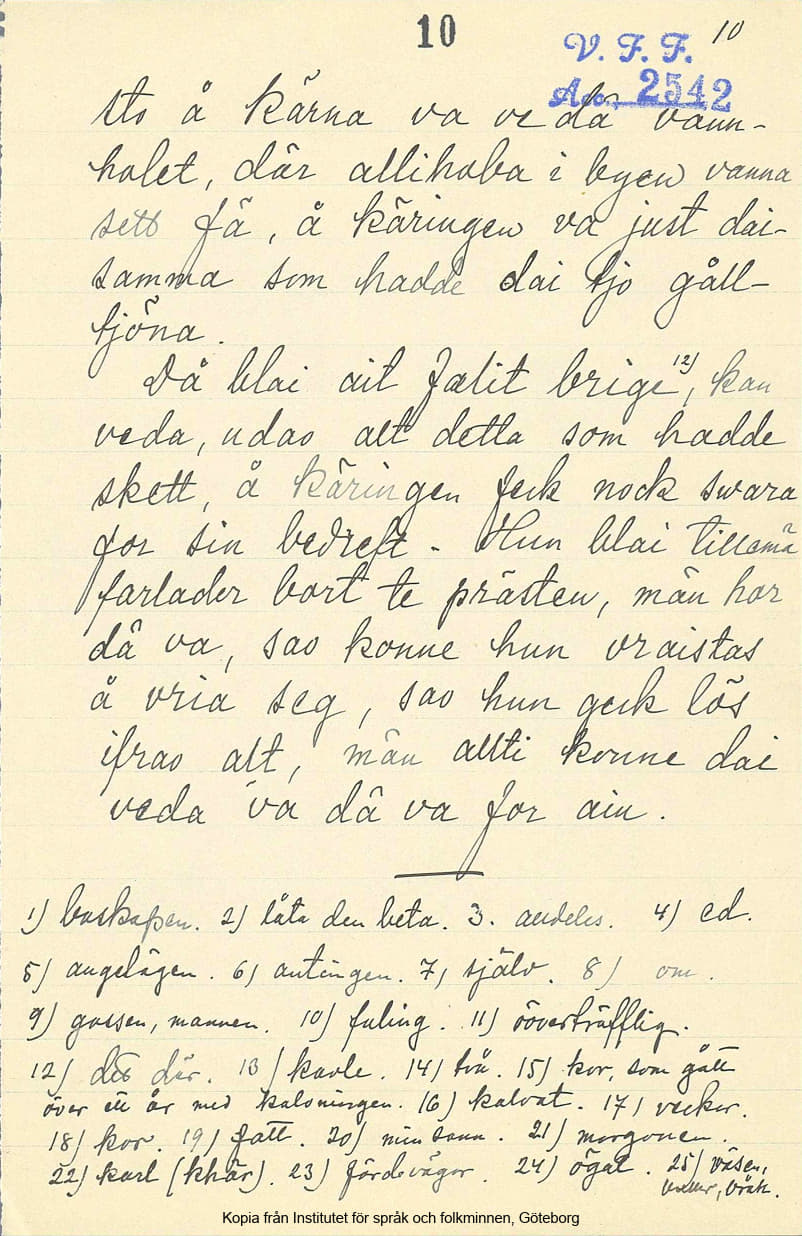 10
10
V. F. F.
Acc. 2542
sto å kärna va ve då vann-
holet, där allihoba i byen vanna
sett fä, å käringen va just dai-
samma som hadde dai tjo gåll-
tjöna.
Då blai ait fælit brige 12), kan
veda, udao alt detta som hadde
skett, å käringen feck nock swara
for sin bedreft. Hun blai tillamä
farlader bort te prästen, män hor
då va, sao konne hun vraistas
å vria seg, sao hun geck lös
ifrao alt, män allti konne dai
veda va då va for ain.
1) boskapen. 2) låta den beta. 3. aldeles. 4) ed.
5) angelägen. 6) antingen. 7) själv. 8) om.
9) gossen, mannen. 10) fuling. 11) oöverträfflig.
12) det där. 13) kavle. 14) två. 15) kor, som gått
över ett år med kalvningen. 16) kalvat. 17) veckor.
18) kor. 19) fatt. 20) min sann. 21) morgonen.
22) karl (khär). 23) färdevägar. 24) ögat. 25) väsen,
Kopia från Institutet för språk och folkminnen, Göteborg